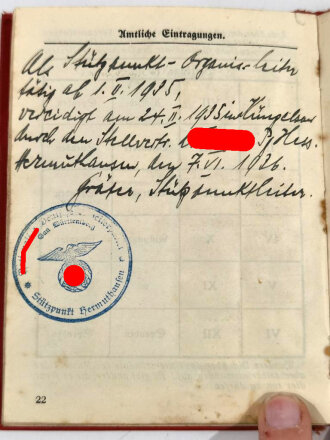 Amtliche Eintragungen.
Als Stützpunkt-Organis.leiter
tätig ab 1. II. 1935,
vereidigt am 24. II. 1935 in Küngelsau
durch den Stellvertr. d Pg Hess
Hermuthausen, den 7. VI. 1936.
Gräter, Stützpunktleiter.
Gau Württemberg
Stützpunkt Hermuthausen
VI XII
22